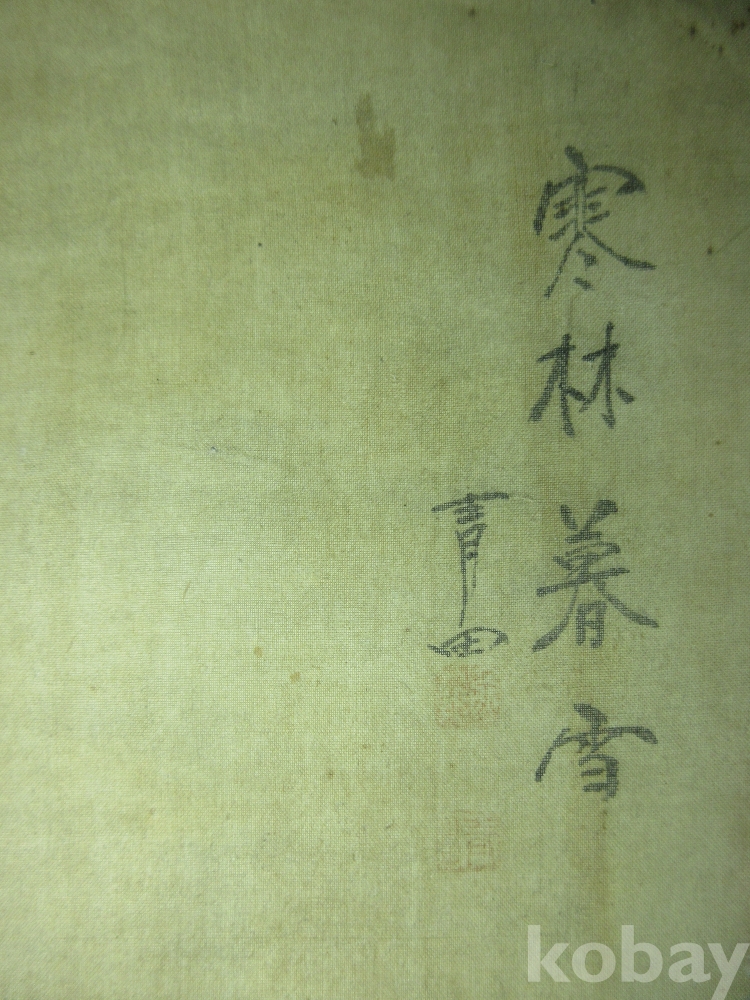 寒林暮雪
青田
kobay